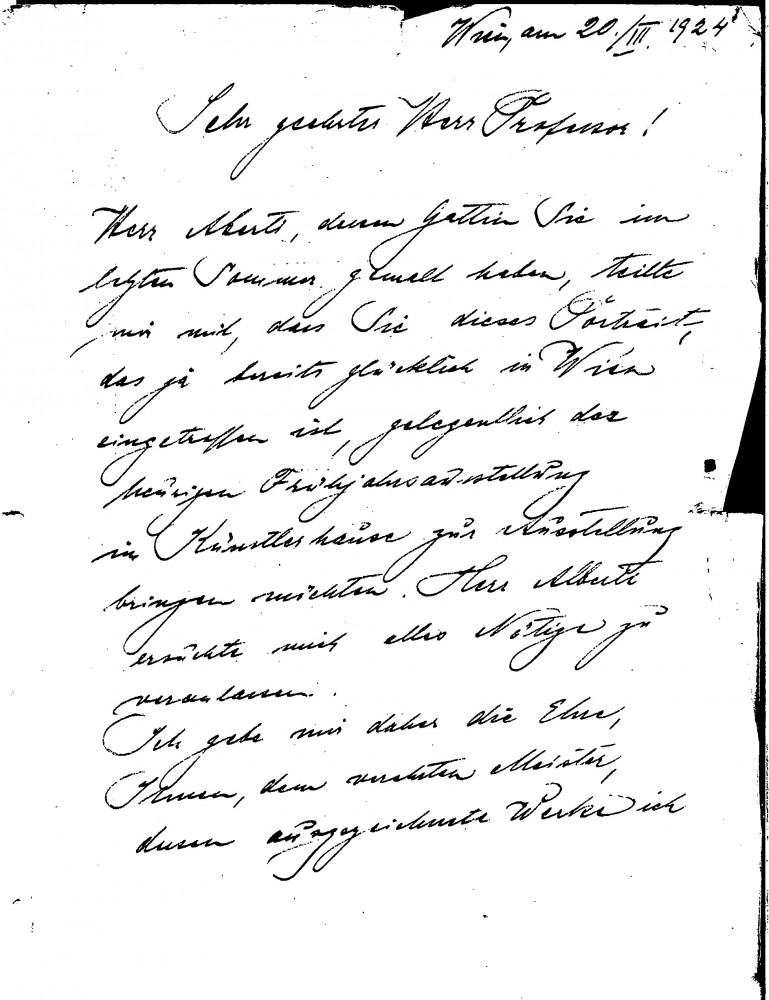 Wien, am 20./III. 1924
Sehr geehrter Herr Professor!
Herr Alberti, dessen Gattin Sie im
letzten Sommer gemalt haben, teilte
mir mit, dass Sie dieses Porträit,
das ja bereits glücklich in Wien
eingetroffen ist, gelegentlich der
heurigen Frühjahrsausstellung
im Künstlerhause zur Ausstellung
bringen möchten. Herr Alberti
ersuchte mich alles Nötige zu
veranlassen.
Ich gebe mir daher die Ehre,
Ihnen, dem verehrten Meister,
dessen ausgezeichnete Werke ich